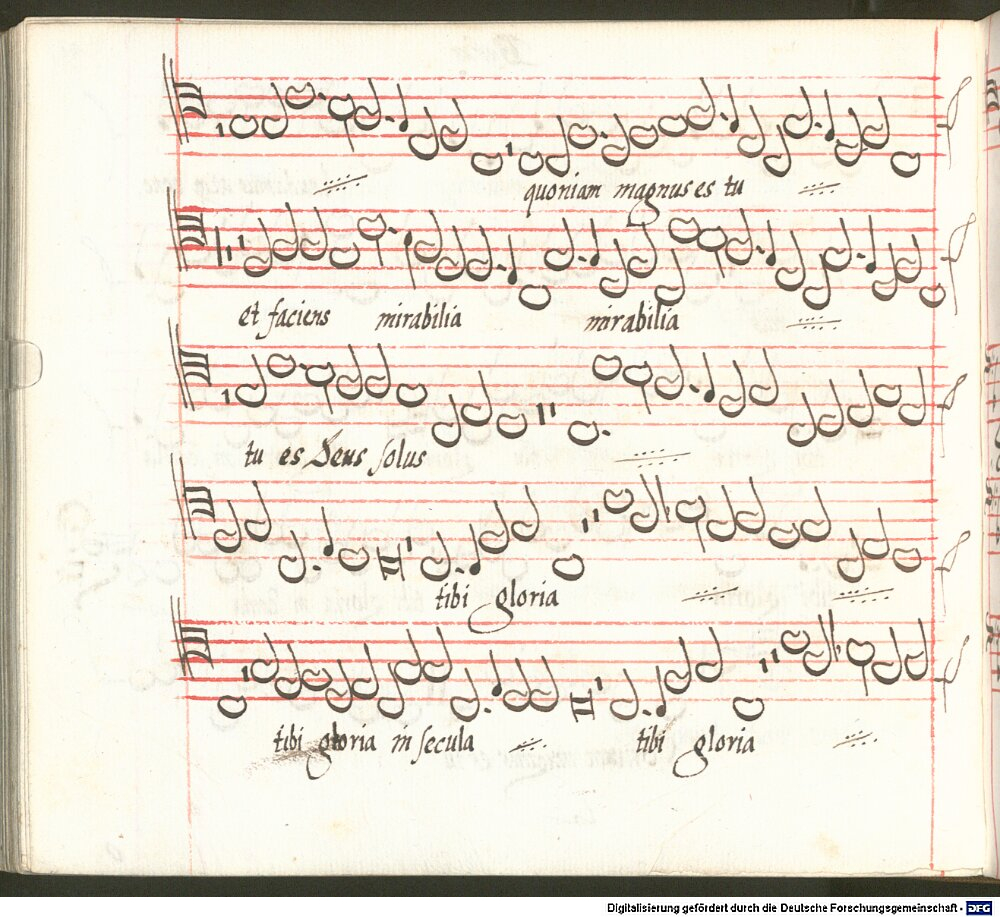 quoniam magnus es tu
et faciens mirabilia mirabilia
tu es Deus solus
tibi gloria
tibi gloria in secula tibi gloria
Digitalisierung gefördert durch die Deutsche Forschungsgemeinschaft - DFG